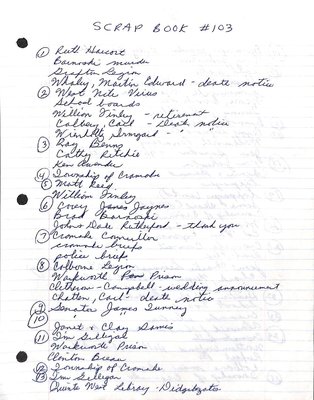 SCRAP BOOK #103
① Ruth Harcort
Barnoski murder
Grafton Legion
Whaley, Martin Edward - death notice
② West Nile Virus
School boards
William Finley - retirement
Calbery, Carl - death notice
Irmgard - " "
③ Ray Benns
Cathy Ritchie
Ken
④ Township of Cramahe
⑤ Matt Reid
William Finley
⑥ Corey James Jaynes
Brad Barnoski
John & Dale Rutherford - thank you
⑦ Cramahe Councillor
cramahe briefs
police briefs
⑧ Colborne Legion
Warkworth Prison
Cletheroe - Campbell - wedding announcement
Chatten, Carl - death notice
⑨ Senator James Tunney
⑩ " "
Janet & Clay Davis
⑪ Tim Gilligal
Warkworth Prison
Clinton Breau
⑫ Township of Cramahe
⑬ Tim Gilligan
Quinte West Library - Didgitization